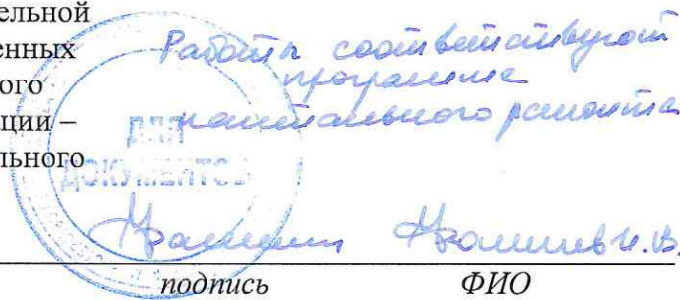 ельной
енных
ого
ции –
льного
Работы соответствуют
программе
капитального ремонта
ДЛЯ
ДОКУМЕНТОВ
И.В.
подпись ФИО